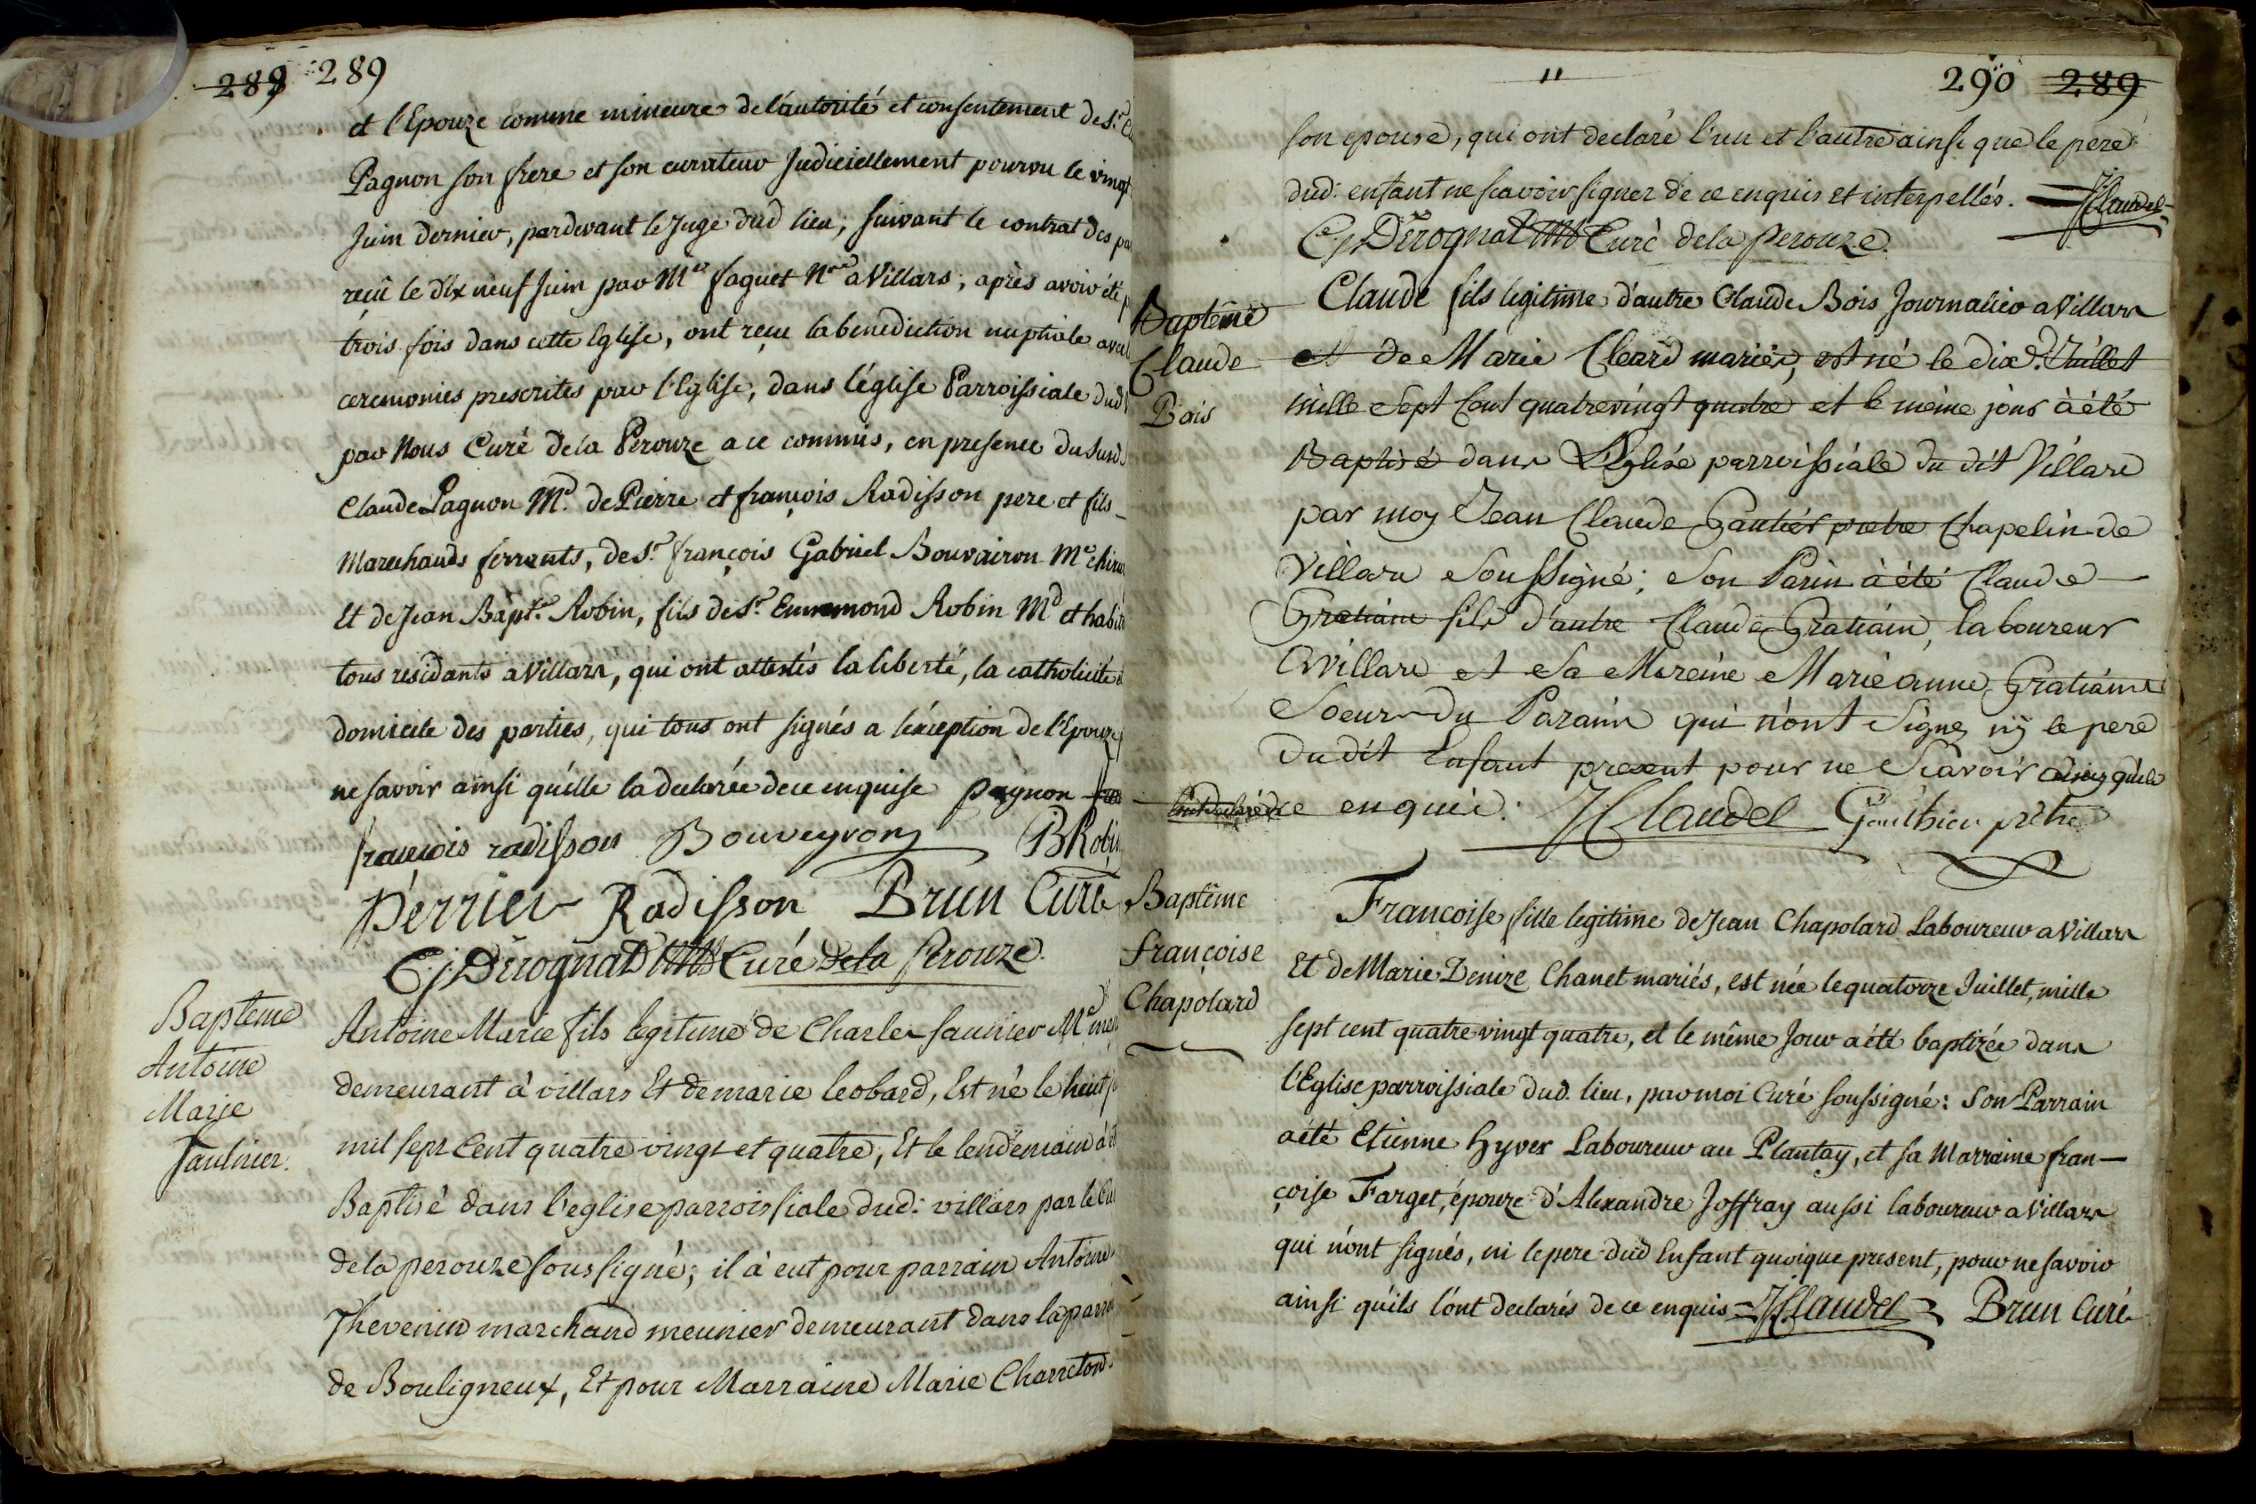 289 289
et l'Epouze comme mineure de l'autorité et consentement de Sr.
Pagnon son frere et son curateur Judiciellement pourvu le vingt
Juin dernier, pardevant le Juge dud lieu, suivant le contrat des
reçû le dix neuf Juin par Me faguet Nre a Villars; après avoir été
trois fois dans cette Eglise, ont reçu la benediction nuptiale avec
ceremonies prescrites par l'Eglise, dans l'église Parroissiale dud
par Nous Curé de la Perouze a ce commis, en presence du susd.
Claude Pagnon Md. de Pierre et françois Radisson pere et fils
Marechauds ferrents, de Sr. françois Gabriel Bouvairon Me chirur
Et de Jean Bapt.e Robin, fils de Sr. Ennemond Robin Md et habit
tous residants a Villars, qui ont attestés la liberté, la catholicité
domicile des parties, qui tous ont signés a l'exception de l'Epouze
ne savoir ainsi qu'elle la declarée de ce enquise Pagnon
françois radisson Bouveyron BRobin
Perrier Radisson Brun Curé
Derognat Curé de la Perouze.
Bapteme
Antoine
Marie
Saulnier.
Antoine Marie fils legitime de Charle saunier Me
demeurant à villars Et de marie Leobard, Est né le huit
mil sept Cent quatre vingt et quatre, Et le lendemain à
Baptisé dans l'eglise parroissiale dud: villars par le Cu
de la perouze soussigné; il à eut pour parrain Antoine
Thevenin marchand meunier demeurant dans la parroi
de Bouligneux, Et pour Marraine Marie Charreton
" 290 289
son epouse, qui ont declaré l'un et l'autre ainsi que le pere
dud: enfant ne scavoir signer de ce enquis et interpellés. JClaudel
Derognat Curé de la Perouze.
Baptême
Claude
Bois
Claude fils legitime d'autre Claude Bois Journalier a Villars
et de Marie Cleard mariés, est né le dix. Juillet
mille Sept Cent quatrevingt quatre et le même jour à été
Baptisé dans L'Eglise parroissiale du dit Villars
par moy Jean Claude Gautier prebre Chapelin de
Villars Soussigné; Son Parin à été Claude
Gratiain fils d'autre Claude Gratiain, laboureur
a villars et Sa Mareine Marie anne Gratiaine
Soeur du Parain qui n'ont Signe, ny le pere
du dit Enfant present pour ne Scavoir ainsy qu'ils
l'ont declaré de ce enquis. JClaudel Gauthier prêtre
Baptême
françoise
Chapolard
Françoise fille legitime de Jean Chapolard Laboureur a Villars
Et de Marie Denize Chanet mariés, est née le quatorze Juillet, mille
sept cent quatre vingt quatre, et le même Jour a été baptizée dans
l'Eglise parroissiale dud. lieu, par moi Curé soussigné: Son Parrain
a été Etienne hyver Laboureur au Plantay, et sa Marraine fran-
çoise Farget, épouze d'Alexandre Joffray aussi laboureur a Villars
qui n'ont signés, ni le pere dud Enfant quoique present, pour ne savoir
ainsi qu'ils l'ont declarés de ce enquis JClaudel Brun Curé